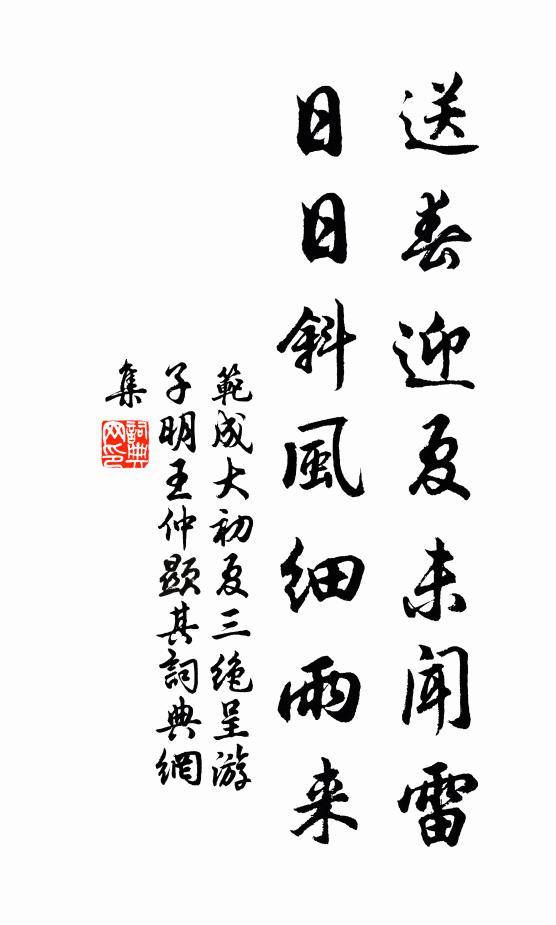 送春迎夏未闻雷
日日斜風细雨来
範成大初夏三绝呈游
子明王仲顯其詞典網
集
詞典
网印